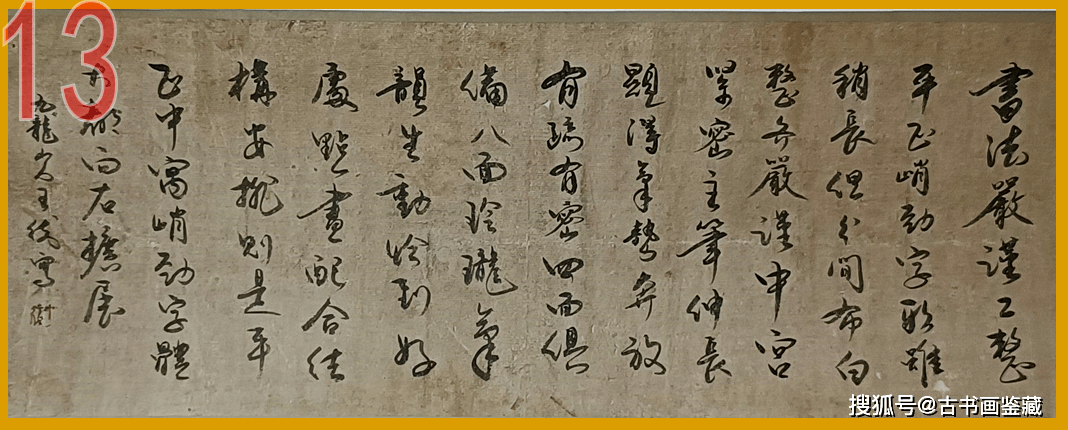 書法嚴謹工整
平正峭勁字形雖
稍長但分間布白
整齊嚴謹中宮
緊密主筆伸長
顯得氣勢奔放
有疏有密四面俱
備八面玲瓏氣
韻生動恰到好
處點畫配合結
構安排則是平
正中寓峭勁字體
大都向右擴展
九龍山人王紱寫
13
搜狐号@古书画鉴藏